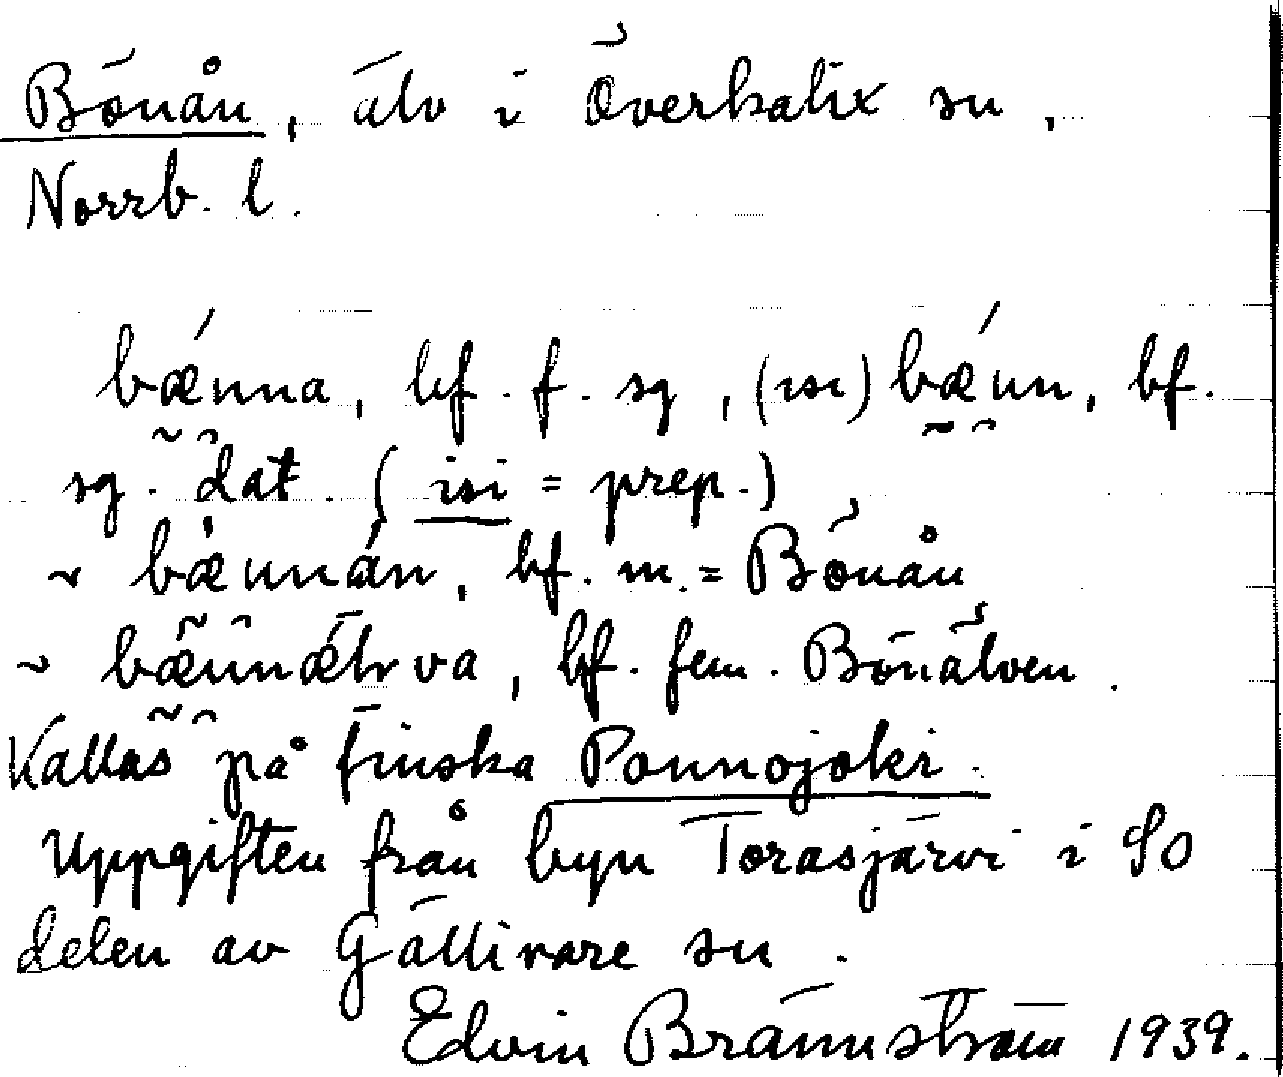 Bönån, älv i Överkalix sn,
Norrb. l.
bǽnna, bf. f. sg, (ısı) bǽnn, bf.
sg. dat. (isi = prep.)
~ bænnán, bf. m. = Bönån
~ bænnǽlva, bf. fem. Bönälven.
Kallas på finska Pounnojoki.
Uppgiften från byn Torasjärvi i SO
delen av Gällivare sn.
Edvin Brännström 1939.